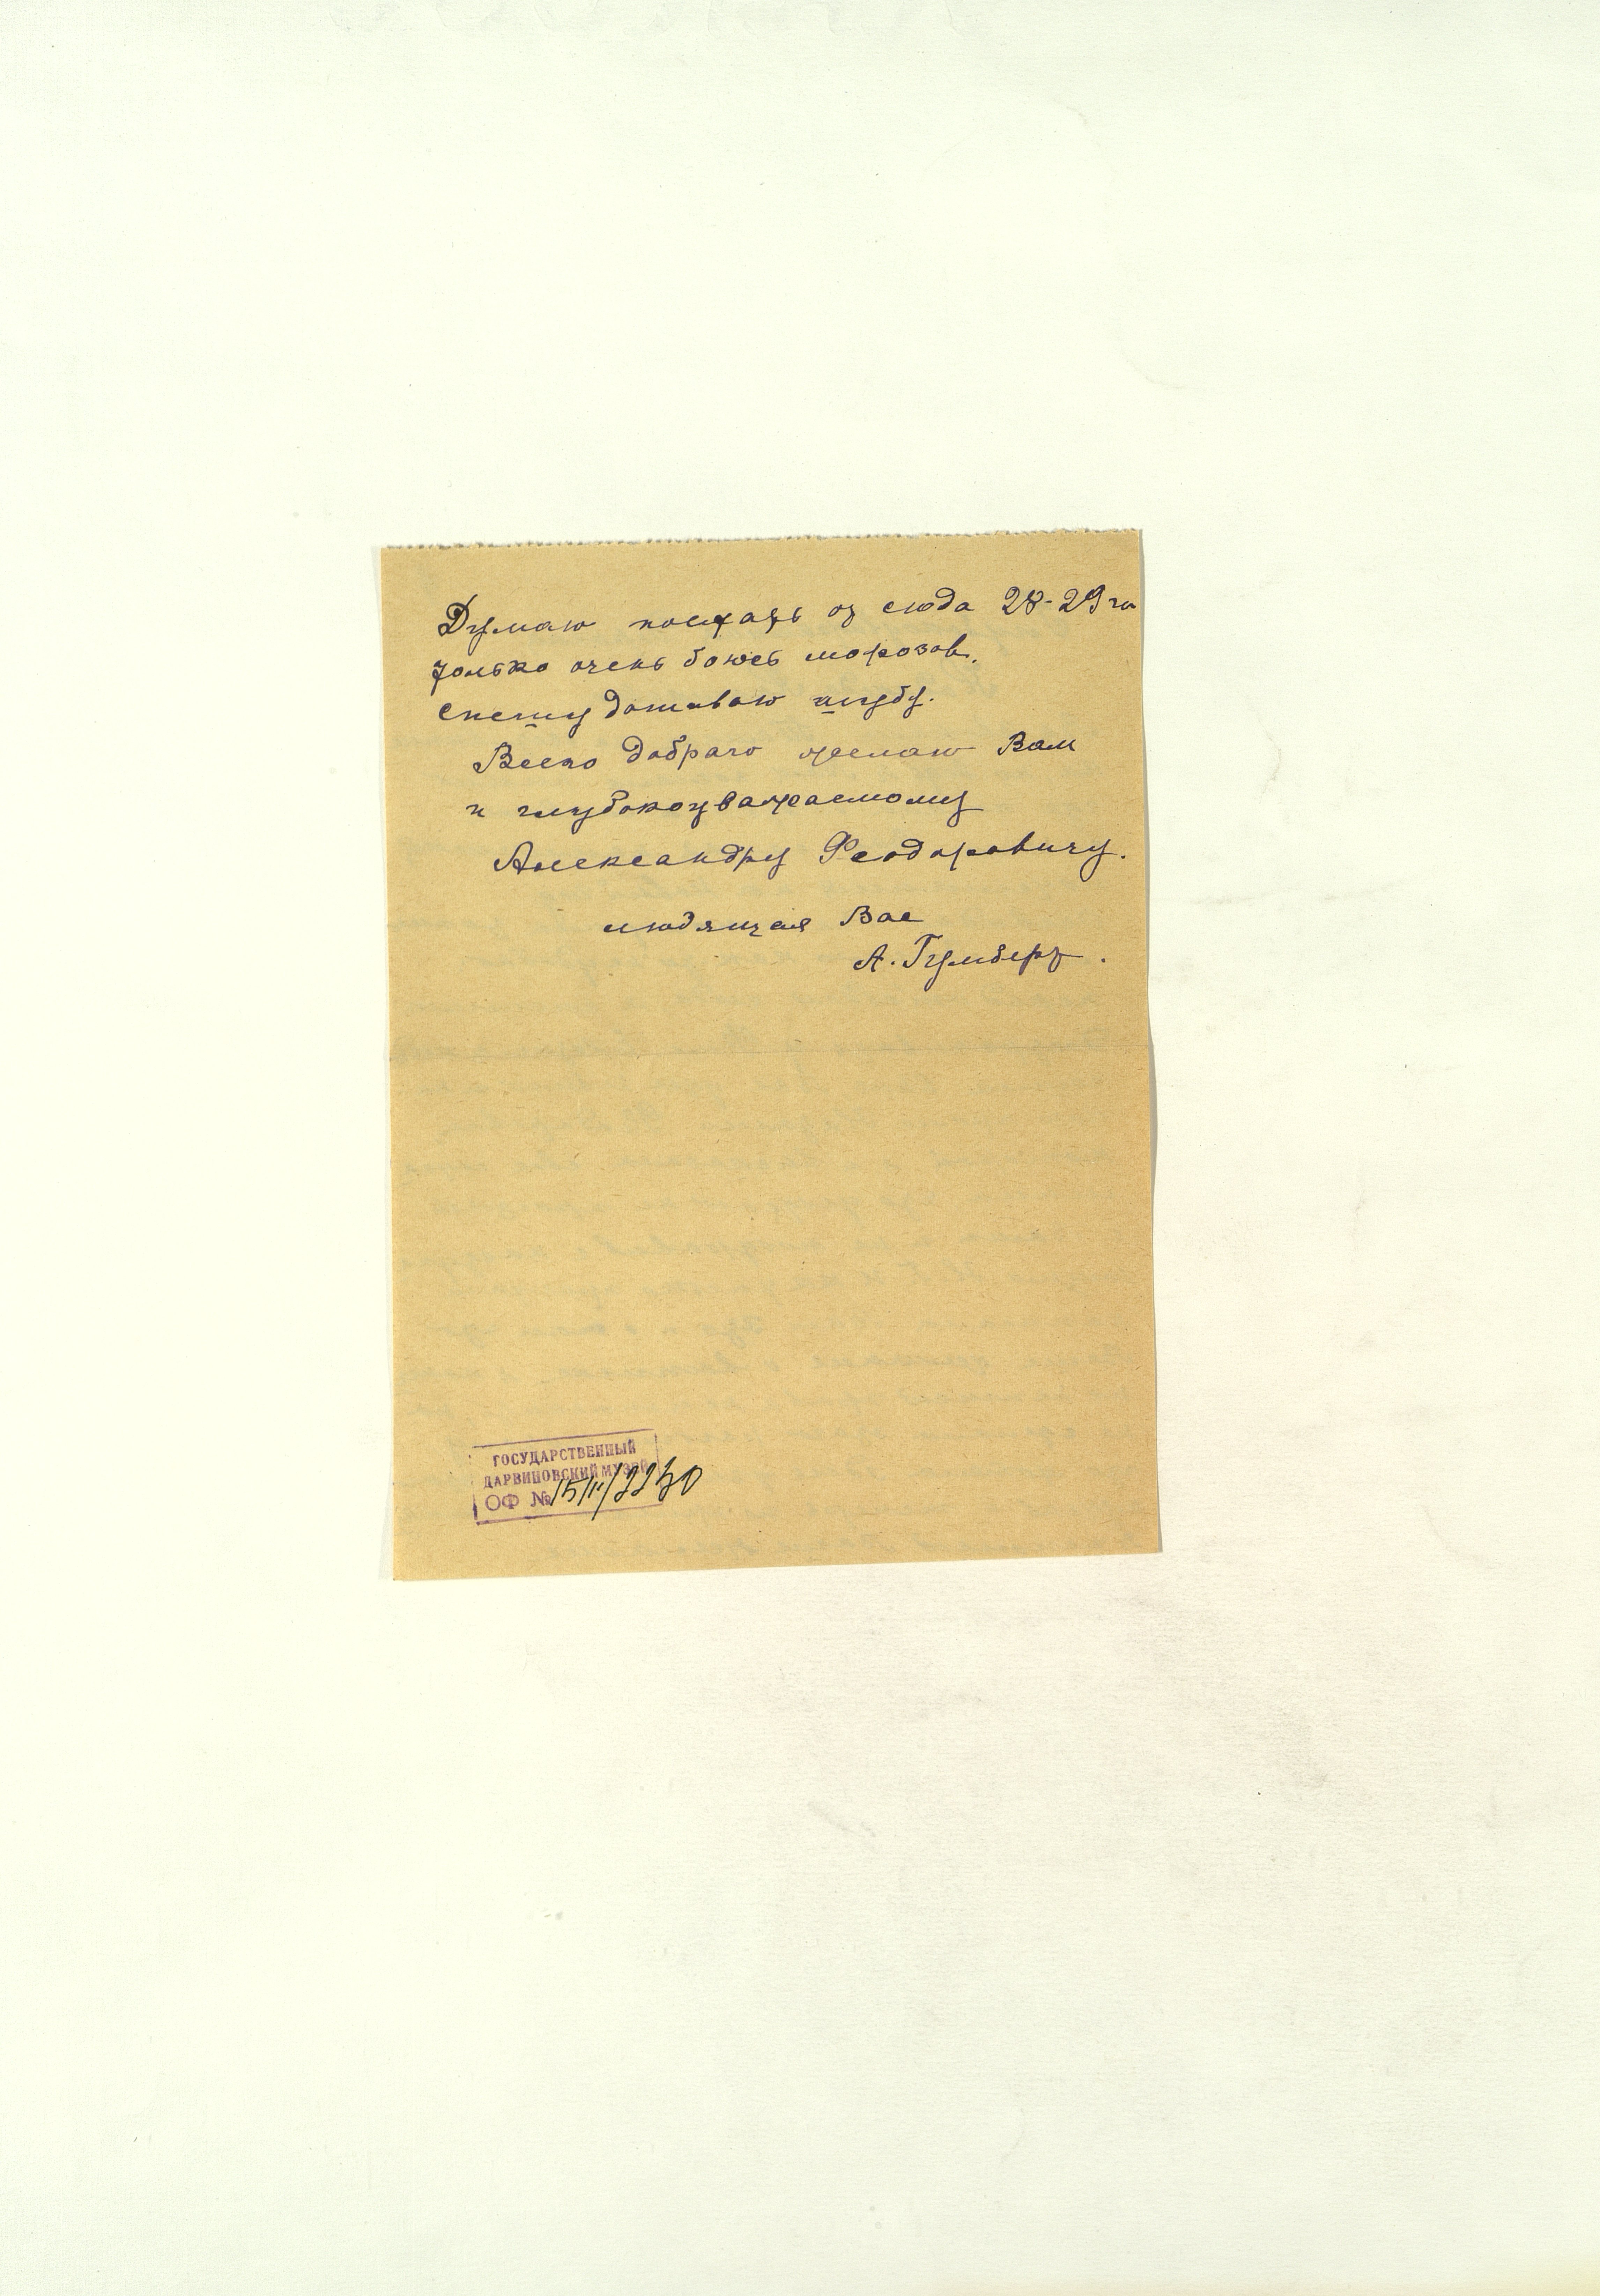 Думаю поехать от сюда 28-29го
только очень боюсь морозов.
Спешу дошиваю шубу.
Всего доброго желаю Вам
и глубокоуважаемому
Александру Феодоровичу.
любящая Вас
А. Гумберт.
ГОСУДАРСТВЕННЫЙ
ДАРВИНОВСКИЙ МУЗЕЙ
ОФ № 15/11/2230